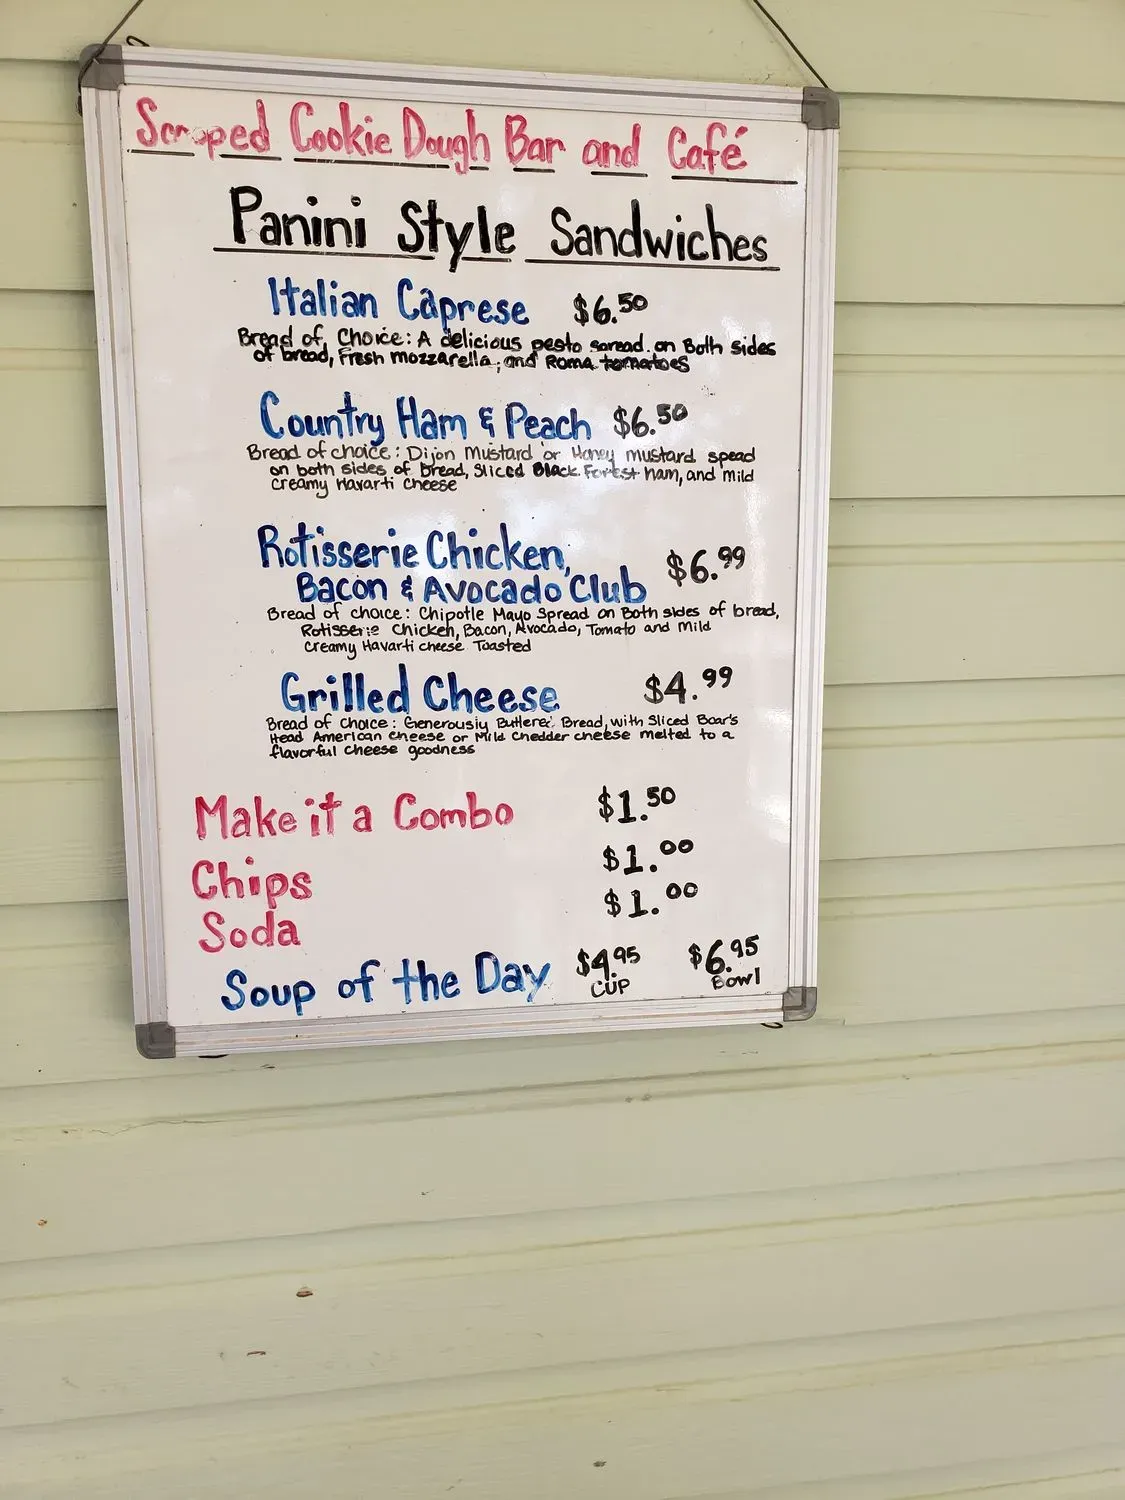 Scooped Cookie Dough Bar and Café
Panini Style Sandwiches
Italian Caprese $6.50
Bread of Choice: A delicious pesto spread on Both sides
of bread, Fresh mozzarella, and Roma tomatoes
Country Ham & Peach $6.50
Bread of choice: Dijon Mustard or Honey mustard spead
on both sides of bread, Sliced Black Forest ham, and Mild
creamy Havarti cheese
Rotisserie Chicken,
Bacon & Avocado Club $6.99
Bread of choice: Chipotle Mayo Spread on Both sides of bread,
Rotisserie Chicken, Bacon, Avocado, Tomato and Mild
creamy Havarti cheese Toasted
Grilled Cheese $4.99
Bread of choice: Generously Buttered Bread, with Sliced Boar's
Head American cheese or Mild Chedder cheese melted to a
flavorful cheese goodness
Make it a Combo $1.50
Chips $1.00
Soda $1.00
Soup of the Day $4.95 $6.95
CUP Bowl